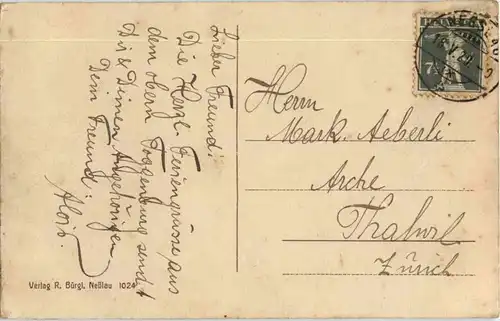 Lieber Freund!
Die Herzl. Feriengrüsse aus
dem obern Toggenburg sendet
Dir & Deinen Angehörigen
Dein Freund:
Alois.
Herrn
Mark. Aeberli
Arche
Thalwil
Zürich
Verlag R. Bürgi, Neßlau 1024